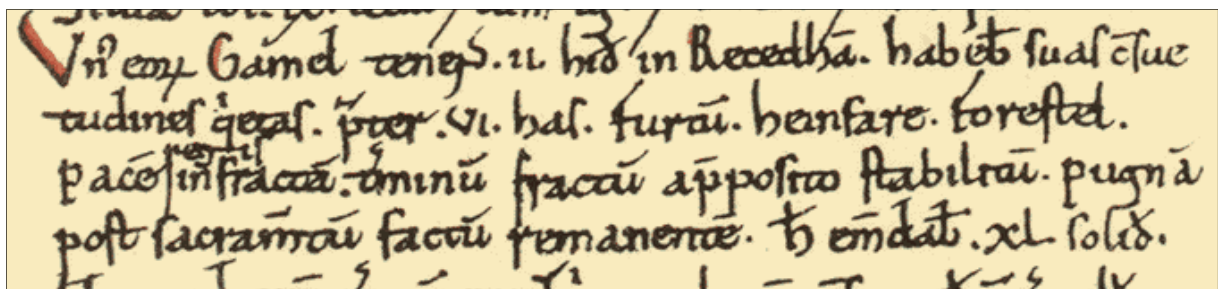 Vn᷒ eoꝝ Gamel teneſ̄. ii. hiđ in Recedhā. habeƀ ſuaſ c̄ſue
tudineſ q̇etaſ. p̄ter .vi. haſ. furtū. heinfare. foreſtel.
regiſ
pacē infractā. t̄minū fractū a p̄poſito ſtabilitū. pugnā
poſt ſacram̄tū factū remanentē. ħ em̄daƀ. xl. ſoliđ.